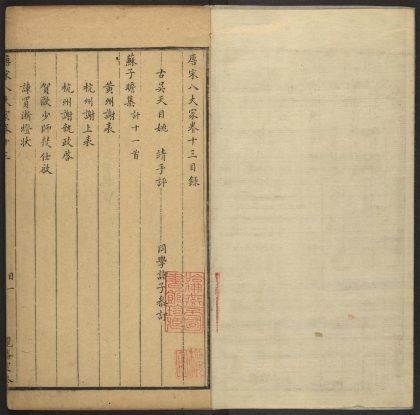 唐宋八大家卷十三目錄
古吳天目姚 靖手評
同學諸子參訂
蘇子瞻計十一首
黃州謝表
杭州謝上表
杭州謝執政啓
賀歐少師致仕啟
諫買浙燈狀
唐宋八大家卷十三
目一